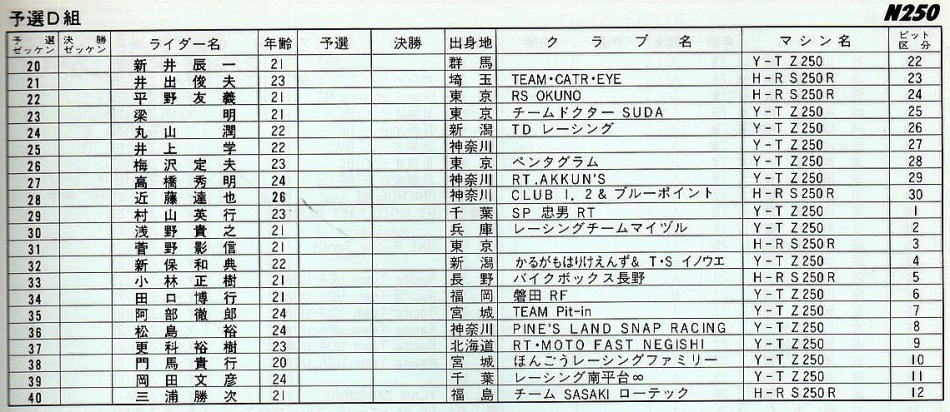 予選D組 N250
予選ゼッケン 決勝ゼッケン ライダー名 年齢 予選 決勝 出身地 クラブ名 マシン名 ピット区分
20 新井辰一 21 群馬 Y-TZ250 22
21 井出俊夫 23 埼玉 TEAM・CATR・EYE H-RS250R 23
22 平野友義 21 東京 RS OKUNO H-RS250R 24
23 梁明 21 東京 チームドクター SUDA Y-TZ250 25
24 丸山潤 22 新潟 TD レーシング Y-TZ250 26
25 井上学 22 神奈川 Y-TZ250 27
26 梅沢定夫 23 東京 ペンタグラム Y-TZ250 28
27 高橋秀明 24 神奈川 RT.AKKUN'S Y-TZ250 29
28 近藤達也 26 神奈川 CLUB 1.2&ブルーポイント H-RS250R 30
29 村山英行 23 千葉 SP 忠男 RT Y-TZ250 1
30 浅野貴之 21 兵庫 レーシングチームマイヅル Y-TZ250 2
31 菅野影信 21 東京 H-RS250R 3
32 新保和典 22 新潟 かるがもはりけえんず& T・S イノウエ Y-TZ250 4
33 小林正樹 21 長野 バイクボックス長野 H-RS250R 5
34 田口博行 21 福岡 磐田 RF Y-TZ250 6
35 阿部徹郎 24 宮城 TEAM Pit-in Y-TZ250 7
36 松島裕 24 神奈川 PINE'S LAND SNAP RACING Y-TZ250 8
37 更科裕樹 23 北海道 RT・MOTO FAST NEGISHI Y-TZ250 9
38 門馬貴行 20 宮城 ほんごうレーシングファミリー Y-TZ250 10
39 岡田文彦 24 千葉 レーシング南平台∞ Y-TZ250 11
40 三浦勝次 21 福島 チーム SASAKI ローテック H-RS250R 12